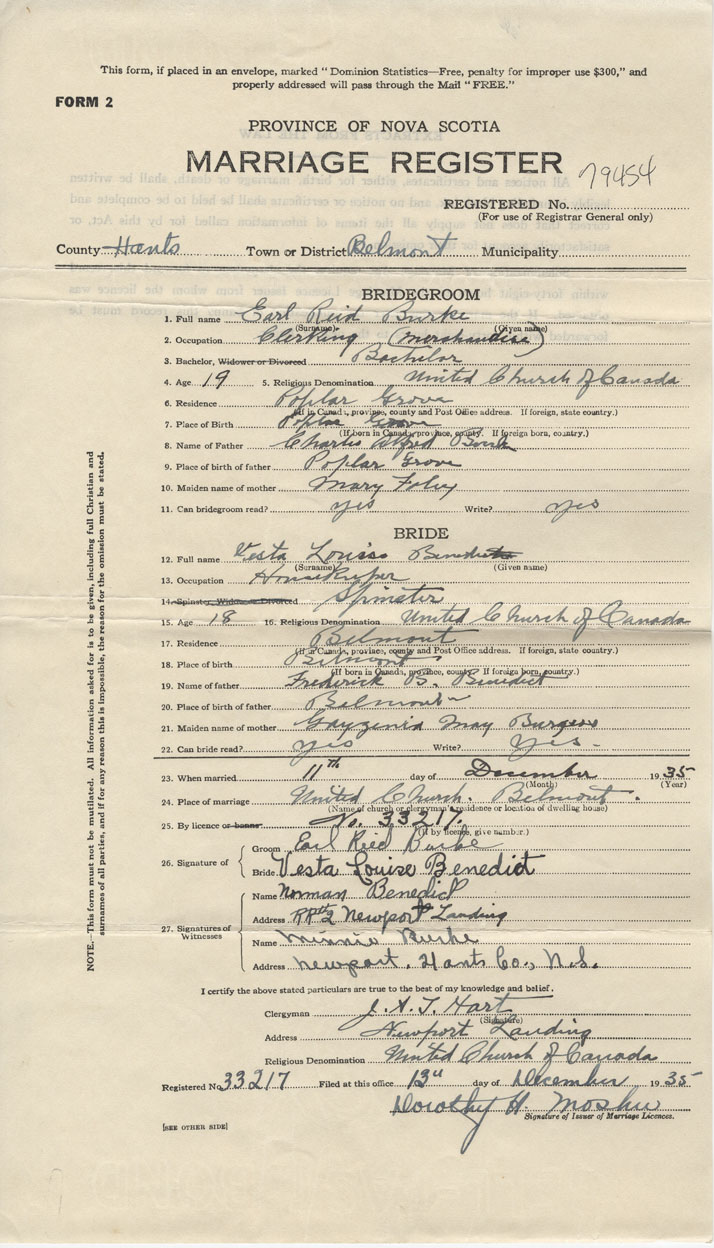 This form, if placed in an envelope, marked "Dominion Statistics—Free, penalty for improper use $300," and
properly addressed will pass through the Mail "FREE."
FORM 2
PROVINCE OF NOVA SCOTIA
MARRIAGE REGISTER 79454
REGISTERED No.
(For use of Registrar General only)
County Hants Town or District Belmont Municipality
BRIDEGROOM
1. Full name Earl Reid Burke
(Surname) (Given name)
2. Occupation Clerking (merchandise)
3. Bachelor, Widower or Divorced Bachelor
4. Age 19 5. Religious Denomination United Church of Canada
6. Residence Poplar Grove
(If in Canada, province, county and Post Office address. If foreign, state country.)
7. Place of Birth Poplar Grove
(If born in Canada, province, county. If foreign born, country.)
8. Name of Father Charles Alfred Burke
9. Place of birth of father Poplar Grove
10. Maiden name of mother Mary Foley
11. Can bridegroom read? yes Write? yes
BRIDE
12. Full name Vesta Louise Benedict
(Surname) (Given name)
13. Occupation Housekeeper
14. Spinster, Widow or Divorced Spinster
15. Age 18 16. Religious Denomination United Church of Canada
17. Residence Belmont
(If in Canada, province, county and Post Office address. If foreign, state country.)
18. Place of birth Belmont
(If born in Canada, province, county. If foreign born, country.)
19. Name of father Frederick B. Benedict
20. Place of birth of father Belmont
21. Maiden name of mother May Burgess
22. Can bride read? yes Write? Yes.
23. When married 11th day of December 1935
(Month) (Year)
24. Place of marriage United Church. Belmont.
(Name of church or clergyman's residence or location of dwelling house)
25. By licence or banns No. 33217.
(If by licence, give number.)
26. Signature of
Groom Earl Reid Burke
Bride Vesta Louise Benedict
27. Signatures of Witnesses
Name Norman Benedict
Address RR#2 Newport Landing
Name Minnie Burke
Address Newport, Hants Co., N.S.
I certify the above stated particulars are true to the best of my knowledge and belief.
Clergyman J. A. T. Hart
(Signature)
Address Newport Landing
Religious Denomination United Church of Canada
Registered No. 33217 Filed at this office 13th day of December 1935
Dorothy H. Mosher
Signature of Issuer of Marriage Licences.
[SEE OTHER SIDE]
NOTE.—This form must not be mutilated. All information asked for is to be given, including full Christian and
surnames of all parties, and if for any reason this is impossible, the reason for the omission must be stated.